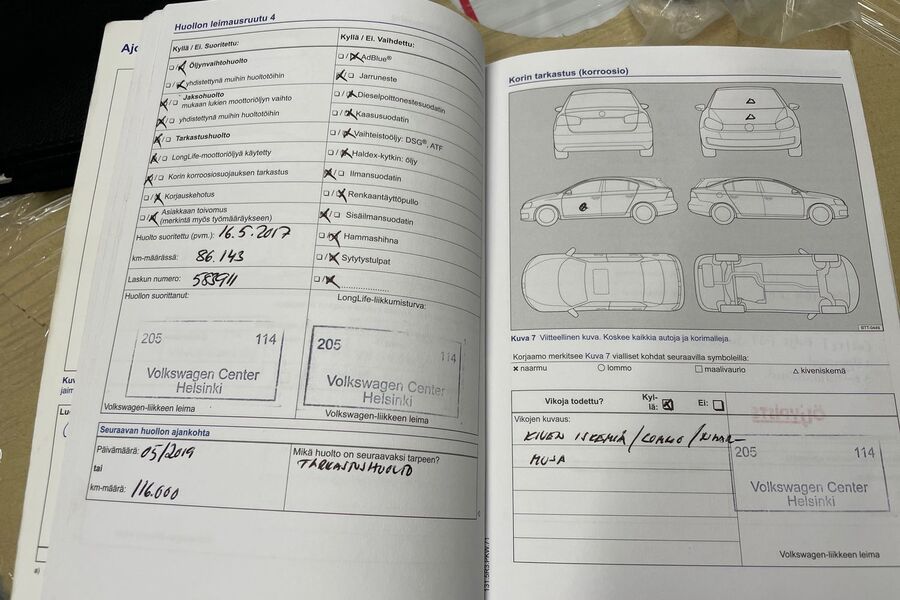 Huollon leimausruutu 4
Kyllä / Ei. Suoritettu:
Öljynvaihtohuolto
yhdistettynä muihin huoltotöihin
Jaksohuolto
mukaan lukien moottoriöljyn vaihto
yhdistettynä muihin huoltotöihin
Tarkastushuolto
LongLife-moottoriöljyä käytetty
Korin korroosiosuojauksen tarkastus
Korjauskehotus
Asiakkaan toivomus
(merkintä myös työmääräykseen)
Huolto suoritettu (pvm.): 16.5.2017
km-määrässä: 86.143
Laskun numero: 583911
Huollon suorittanut:
205 114
Volkswagen Center
Helsinki
Volkswagen-liikkeen leima
Kyllä / Ei. Vaihdettu:
AdBlue®
Jarruneste
Dieselpolttonestesuodatin
Kaasusuodatin
Vaihteistoöljy: DSG®, ATF
Haldex-kytkin: öljy
Ilmansuodatin
Renkaantäyttöpullo
Sisäilmansuodatin
Hammashihna
Sytytystulpat
LongLife-liikkumisturva:
205 114
Volkswagen Center
Helsinki
Volkswagen-liikkeen leima
Seuraavan huollon ajankohta
Päivämäärä: 05/2019
tai
km-määrä: 116.000
Mikä huolto on seuraavaksi tarpeen?
TARKASTUSHUOLTO
Korin tarkastus (korroosio)
BTT-0449
Kuva 7 Viitteellinen kuva. Koskee kaikkia autoja ja korimalleja.
Korjaamo merkitsee Kuva 7 vialliset kohdat seuraavilla symboleilla:
× naarmu ○ lommo □ maalivaurio △ kiveniskemä
Vikoja todettu? Kyl-
lä: Ei:
Vikojen kuvaus:
KIVEN ISKEMIÄ/LOMMO/NAAR-
MUJA
205 114
Volkswagen Center
Helsinki
Volkswagen-liikkeen leima